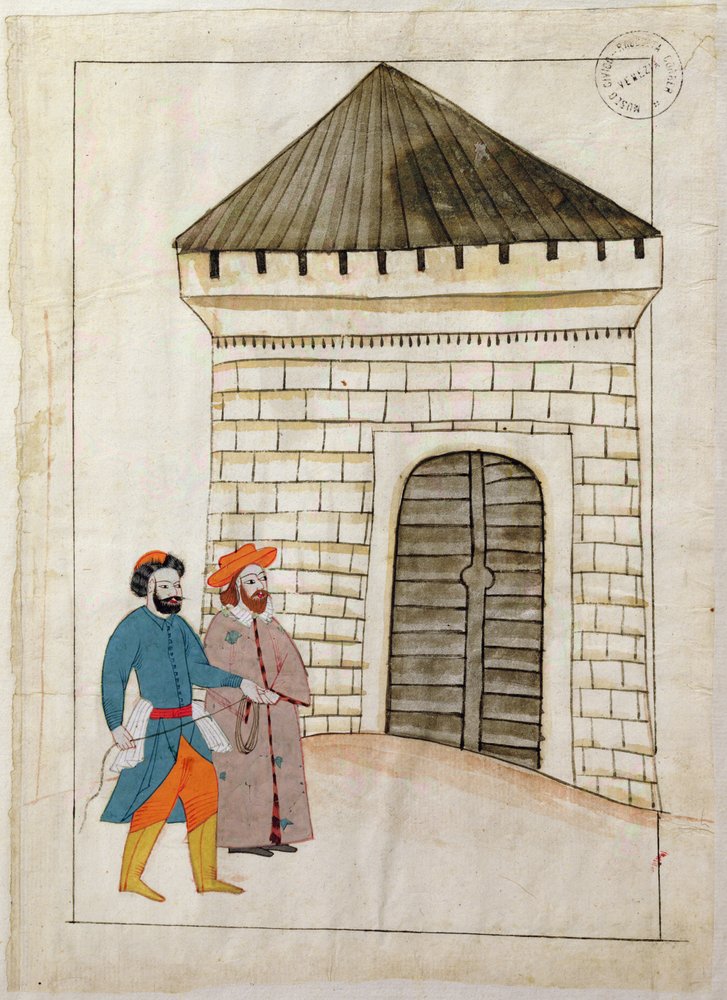 MUSEO CIVICO RACCOLTA CORRER
VENEZIA